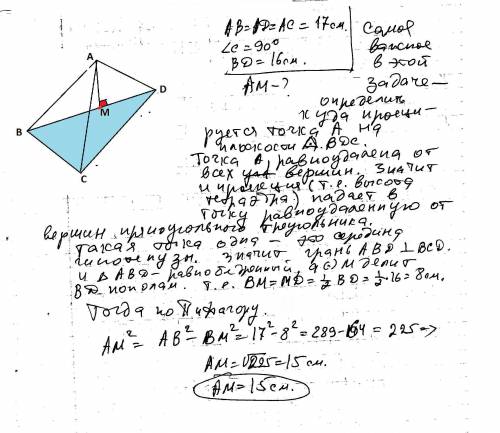 A
D
M
B
C
AB=AD=AC = 17см.
∠C = 90°
BD = 16см.
AM - ?
Самое
важное
в этой
задаче -
определить
куда проеци-
руется точка А на
плоскости △ BDC.
Точка А равноудалена от
всех вершин. Значит
и проекция (т.е. высота
) падает в
точку равноудалённую от
вершин прямоугольного треугольника.
Такая точка одна - середина
гипотенузы. Значит грань ABD ⊥ BCD.
и △ ABD - равнобедренный, а М делит
BD пополам. т.е. BM = MD = ½ BD = ½·16 = 8см.
Тогда по Пифагору.
AM² = AB² - BM² = 17² - 8² = 289 - 64 = 225 =>
AM = √225 = 15 см.
AM = 15 см.